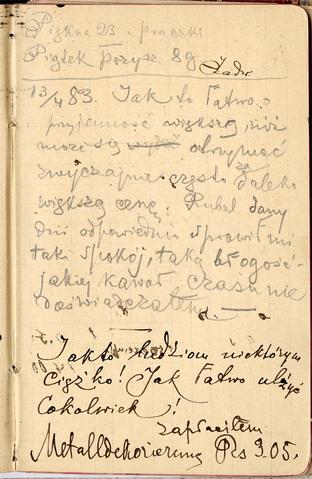 Piękna 23 u praczki
Piątek Przysz 8g
Zadr
13/4 83. Jak to łatwo
przyjemność większą niż
może się otrzymać
zwyczajnie często za daleko
większą cenę. Rubel dany
dziś odpowiednio sprawił mi
taki spokój, taką błogość
jakiej kawał czasu nie
doświadczałem. —
Jak to ludziom niektórym
Ciężko! Jak łatwo ulżyć
Cokolwiek!
zapłaciłem
Metalldekorierung Rs 3.05.